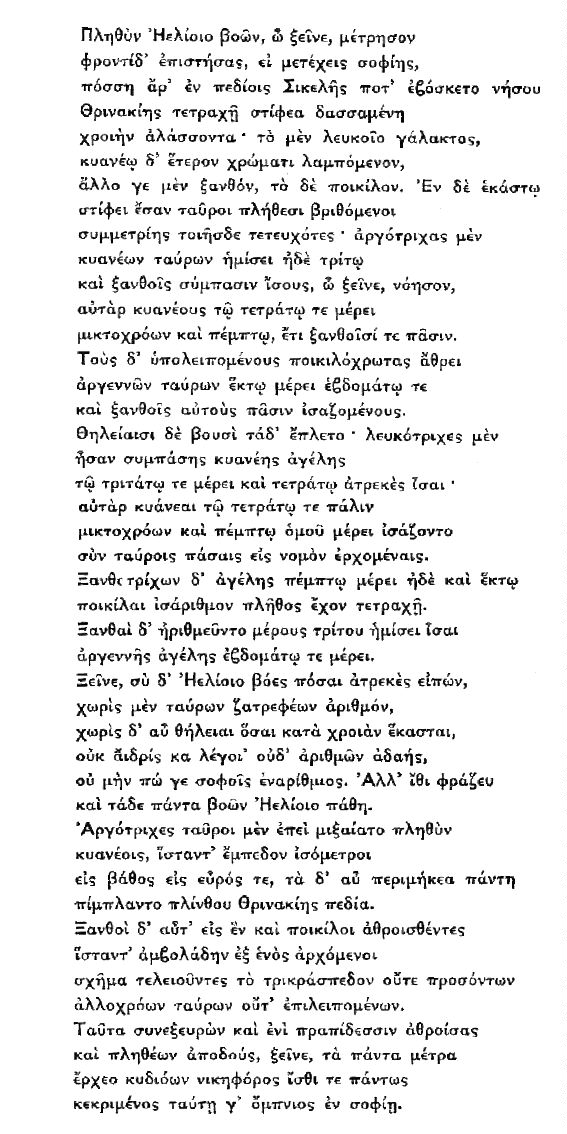 Πληθὺν Ἠελίοιο βοῶν, ὦ ξεῖνε, μέτρησον
φροντίδ' ἐπιστήσας, εἰ μετέχεις σοφίης,
πόσση ἄρ' ἐν πεδίοις Σικελῆς ποτ' ἐβόσκετο νήσου
Θρινακίης τετραχῇ στίφεα δασσαμένη
χροιὴν ἀλάσσοντα· τὸ μὲν λευκοῖο γάλακτος,
κυανέῳ δ' ἕτερον χρώματι λαμπόμενον,
ἄλλο γε μὲν ξανθόν, τὸ δὲ ποικίλον. Ἐν δὲ ἑκάστῳ
στίφει ἔσαν ταῦροι πλήθεσι βριθόμενοι
συμμετρίης τοιῆσδε τετευχότες· ἀργότριχας μὲν
κυανέων ταύρων ἡμίσει ἠδὲ τρίτῳ
καὶ ξανθοῖς σύμπασιν ἴσους, ὦ ξεῖνε, νόησον,
αὐτὰρ κυανέους τῷ τετράτῳ τε μέρει
μικτοχρόων καὶ πέμπτῳ, ἔτι ξανθοῖσί τε πᾶσιν.
Τοὺς δ' ὑπολειπομένους ποικιλόχρωτας ἄθρει
ἀργεννῶν ταύρων ἕκτῳ μέρει ἑβδομάτῳ τε
καὶ ξανθοῖς αὐτοὺς πᾶσιν ἰσαζομένους.
Θηλείαισι δὲ βουσὶ τάδ' ἔπλετο· λευκότριχες μὲν
ἦσαν συμπάσης κυανέης ἀγέλης
τῷ τριτάτῳ τε μέρει καὶ τετράτῳ ἀτρεκὲς ἶσαι·
αὐτὰρ κυάνεαι τῷ τετράτῳ τε πάλιν
μικτοχρόων καὶ πέμπτῳ ὁμοῦ μέρει ἰσάζοντο
σὺν ταύροις πάσαις εἰς νομὸν ἐρχομέναις.
Ξανθοτρίχων δ' ἀγέλης πέμπτῳ μέρει ἠδὲ καὶ ἕκτῳ
ποικίλαι ἰσάριθμον πλῆθος ἔχον τετραχῇ.
Ξανθαὶ δ' ἠριθμεῦντο μέρους τρίτου ἡμίσει ἶσαι
ἀργεννῆς ἀγέλης ἑβδομάτῳ τε μέρει.
Ξεῖνε, σὺ δ' Ἠελίοιο βόες πόσαι ἀτρεκὲς εἰπών,
χωρὶς μὲν ταύρων ζατρεφέων ἀριθμόν,
χωρὶς δ' αὖ θήλειαι ὅσαι κατὰ χροιὰν ἕκασται,
οὐκ ἄιδρίς κα λέγοι' οὐδ' ἀριθμῶν ἀδαής,
οὐ μὴν πώ γε σοφοῖς ἐναρίθμιος. Ἀλλ' ἴθι φράζευ
καὶ τάδε πάντα βοῶν Ἠελίοιο πάθη.
Ἀργότριχες ταῦροι μὲν ἐπεὶ μιξαίατο πληθὺν
κυανέοις, ἵσταντ' ἔμπεδον ἰσόμετροι
εἰς βάθος εἰς εὖρός τε, τὰ δ' αὖ περιμήκεα πάντη
πίμπλαντο πλίνθου Θρινακίης πεδία.
Ξανθοὶ δ' αὖτ' εἰς ἓν καὶ ποικίλοι ἀθροισθέντες
ἵσταντ' ἀμβολάδην ἐξ ἑνὸς ἀρχόμενοι
σχῆμα τελειοῦντες τὸ τρικράσπεδον οὔτε προσόντων
ἀλλοχρόων ταύρων οὔτ' ἐπιλειπομένων.
Ταῦτα συνεξευρὼν καὶ ἐνὶ πραπίδεσσιν ἀθροίσας
καὶ πληθέων ἀποδούς, ξεῖνε, τὰ πάντα μέτρα
ἔρχεο κυδιόων νικηφόρος ἴσθι τε πάντως
κεκριμένος ταύτῃ γ' ὄμπνιος ἐν σοφίῃ.